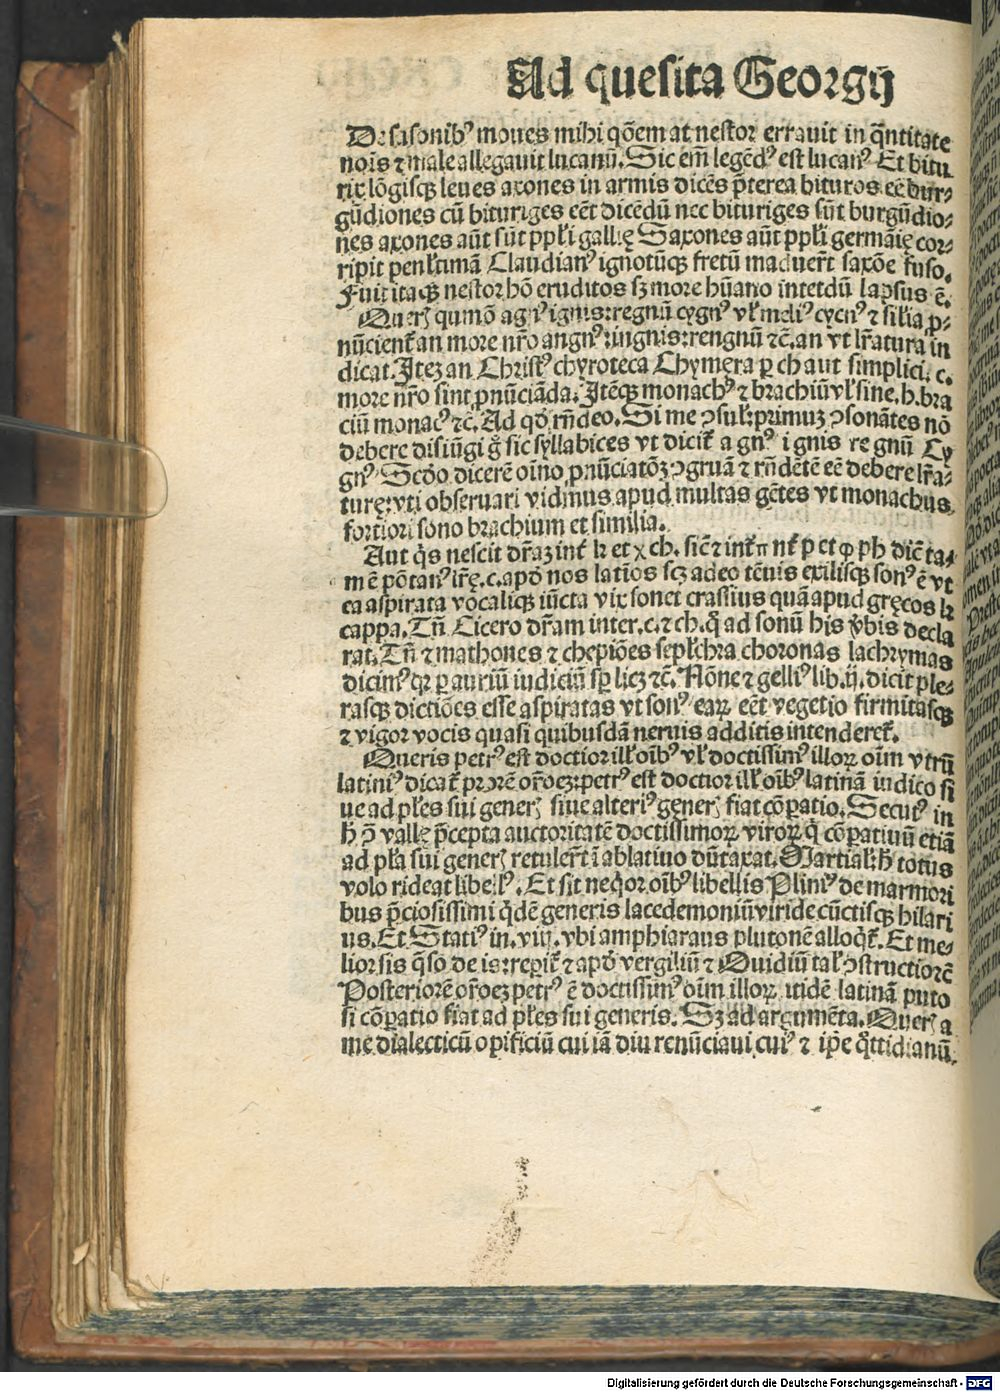 Ad quesita Georgij
De saxonibꝰ moues mihi qõem at nestor errauit in q̃ntitate
nois ⁊ male allegauit lucanũ. Sic em̃ legẽdꝰ est lucanꝰ Et bitu
rix lõgisqꝫ leues axones in armis dicẽs p̃terea bituros eẽ bur⸗
gũdiones cũ bituriges eẽt dicẽdũ nec bituriges sũt burgũdio⸗
nes axones aũt sũt ppl̃i gallię Saxones aũt ppl̃i germãię cor⸗
ripit penl̃timã Claudianꝰ ignotũqꝫ fretũ maduer̃t saxõe fuso.
Fuit itaqꝫ nestor hõ eruditos sꝫ more hũano intetdũ lapsus ẽ.
Querꝭ qumõ agnꝰ ignis:regnũ cygnꝰ vl̃ mdiꝰ cycnꝰ ⁊ sil̃ia ꝓ⸗
nũcient̃ an more nr̃o angnꝰ:ingnis:rengnũ ⁊c̃. an vt lr̃atura in
dicat. Itez an Christꝰ chyroteca Chymęra ꝑ ch aut simplici. c.
more nr̃o sint ꝓnũciãda. Itẽqꝫ monachꝰ ⁊ brachiũ vl̃ sine. h. bra
ciũ monacꝰ ⁊c̃. Ad qd̃ rñdeo. Si me ↄsul̃: primuz ↄsonãtes nõ
debere disiũgi g̊ sic syllabices vt dicit̃ a gnꝰ i gnis re gnũ Cy
gnꝰ Scd̃o dicerẽ oĩno ꝓnũciatõꝫ ↄgruã ⁊ rñdẽtẽ eẽ debere lr̃a⸗
turę: vti obseruari vidmus apud multas gẽtes vt monachus
fortiori sono brachium et similia.
Aut q̃s nescit dr̃az int̃ k et χ ch. sic̃ ⁊ int̃ π nt̃ p et φ ph dic̃ ta⸗
m ẽ põtanꝰ ir̃ę. c. apd̃ nos latĩos scꝫ adeo tẽuis exilisqꝫ sonꝰ ẽ vt
ea aspirata vocaliqꝫ iũcta vix sonet crassius quã apud gręcos k
cappa. Tñ Cicero dr̃am inter. c. ⁊ ch. q̃ ad sonũ his v̾bis decla
rat. Tñ ⁊ mathones ⁊ chepiões sepl̃chra choronas lachrymas
dicimꝰ qꝛ ꝑ auriũ iudiciũ sp̃ licꝫ ⁊c̃. Nõne ⁊ gelliꝰ lib. ij. dicit ple⸗
rasqꝫ dictiões esse aspiratas vt sonꝰ eaꝝ eẽt vegetio firmitasqꝫ
⁊ vigor vocis quasi quibusdã neruis additis intenderet̃.
Queris petrꝰ est doctior ill̃ oĩbꝰ vl̃ doctissimꝰ illoꝝ oĩm vtrũ
latiniꝰ dicat̃ prorẽ or̃oez: petrꝰ est doctior ill̃ oĩbꝰ latinã iudico si
ue ad pl̃es sui generꝭ siue alteriꝰ generꝭ fiat cõꝑatio. Secutꝰ in
h̃ p̃ vallę p̃cepta auctoritatẽ doctissimoꝝ viroꝝ q̃ cõꝑatiuũ etiã
ad pl̃a sui generꝭ retuler̃t ĩ ablatiuo dũtaxat. Martial̃: h̃ totus
volo rideat libellꝰ. Et sit neq̃or oĩbꝰ libellis Pliniꝰ de marmori
bus p̃ciosissimi q̃dẽ generis lacedemoniũ viride cũctisqꝫ hilari
us. Et Statiꝰ in. viij. vbi amphiaraus plutonẽ alloq̃t̃. Et me⸗
lior sis q̃so deis: reperit̃ ⁊ apd̃ vergiliũ ⁊ Ouidiũ tal̃ ↄstructiorẽ
Posteriorẽ or̃oez petrꝰ ẽ doctissimꝰ oĩm illoꝝ itidẽ latinã puto
si cõꝑatio fiat ad pl̃es sui generis. Sꝫ ad argumẽta. Querꝭ a
me dialecticũ opificiũ cui iã diu renũciaui cuiꝰ ⁊ ip̃e q̃ttidianũ
Digitalisierung gefördert durch die Deutsche Forschungsgemeinschaft - DFG